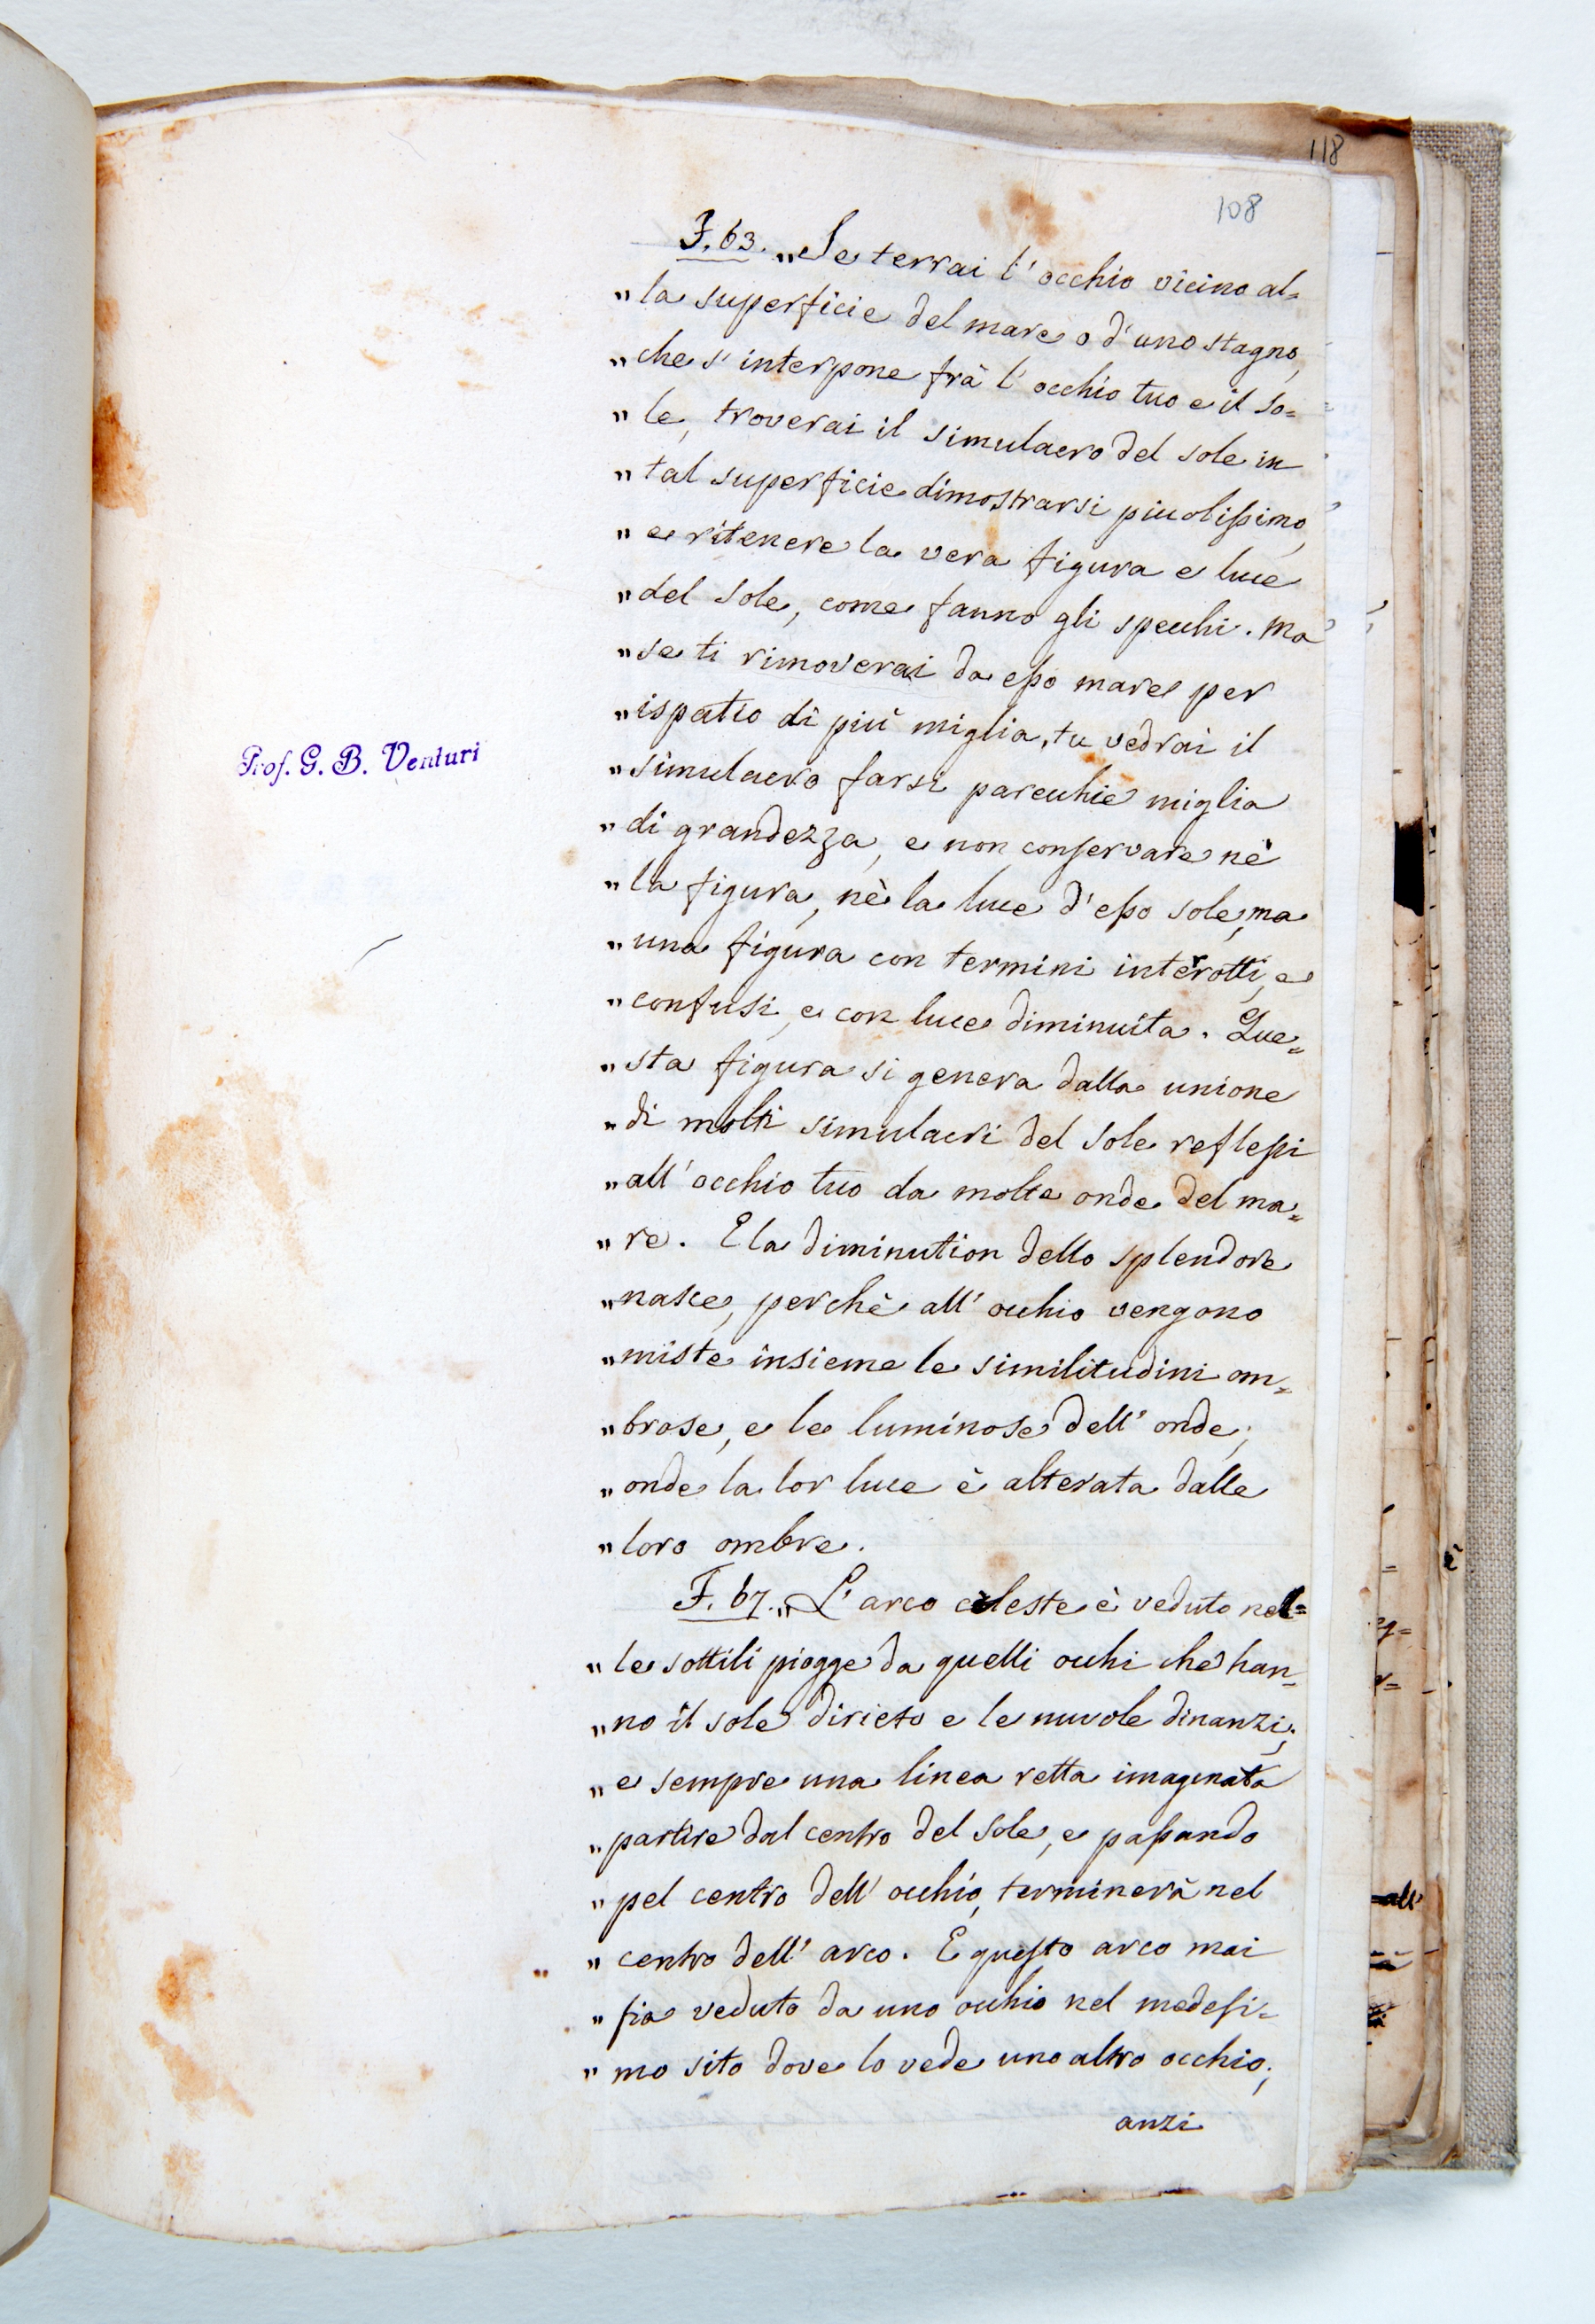 118
108
F. 63. „Se terrai l'occhio vicino al=
„la superficie del mare o d'uno stagno,
„che s'interpone frà l'occhio tuo e il so=
„le, troverai il simulacro del sole in
„tal superficie dimostrarsi piccolissimo,
„e ritenere la vera figura e luce
„del sole, come fanno gli specchi. Ma
„se ti rimoverai da esso mare per
„ispatio di più miglia, tu vedrai il
„simulacro farsi parecchie miglia
„di grandezza, e non conservare nè
„la figura, nè la luce d'esso sole, ma
„una figura con termini interotti, e
„confusi, e con luce diminuita. Que=
„sta figura si genera dalla unione
„di molti simulacri del sole reflessi
„all'occhio tuo da molte onde del ma=
„re. E la diminution dello splendore
„nasce, perchè all'occhio vengono
„miste insieme le similitudini om=
„brose, e le luminose dell'onde;
„onde la lor luce è alterata dalle
„loro ombre.
F. 67. „L'arco celeste è veduto nel=
„le sottili piogge da quelli occhi che han=
„no il sole dirieto e le nuvole dinanzi;
„e sempre una linea retta imaginata
„partire dal centro del sole, e passando
„pel centro dell'occhio, terminerà nel
„centro dell'arco. E questo arco mai
„fia veduto da uno occhio nel medesi=
„mo sito dove lo vede uno altro occhio;
anzi
Prof. G. B. Venturi